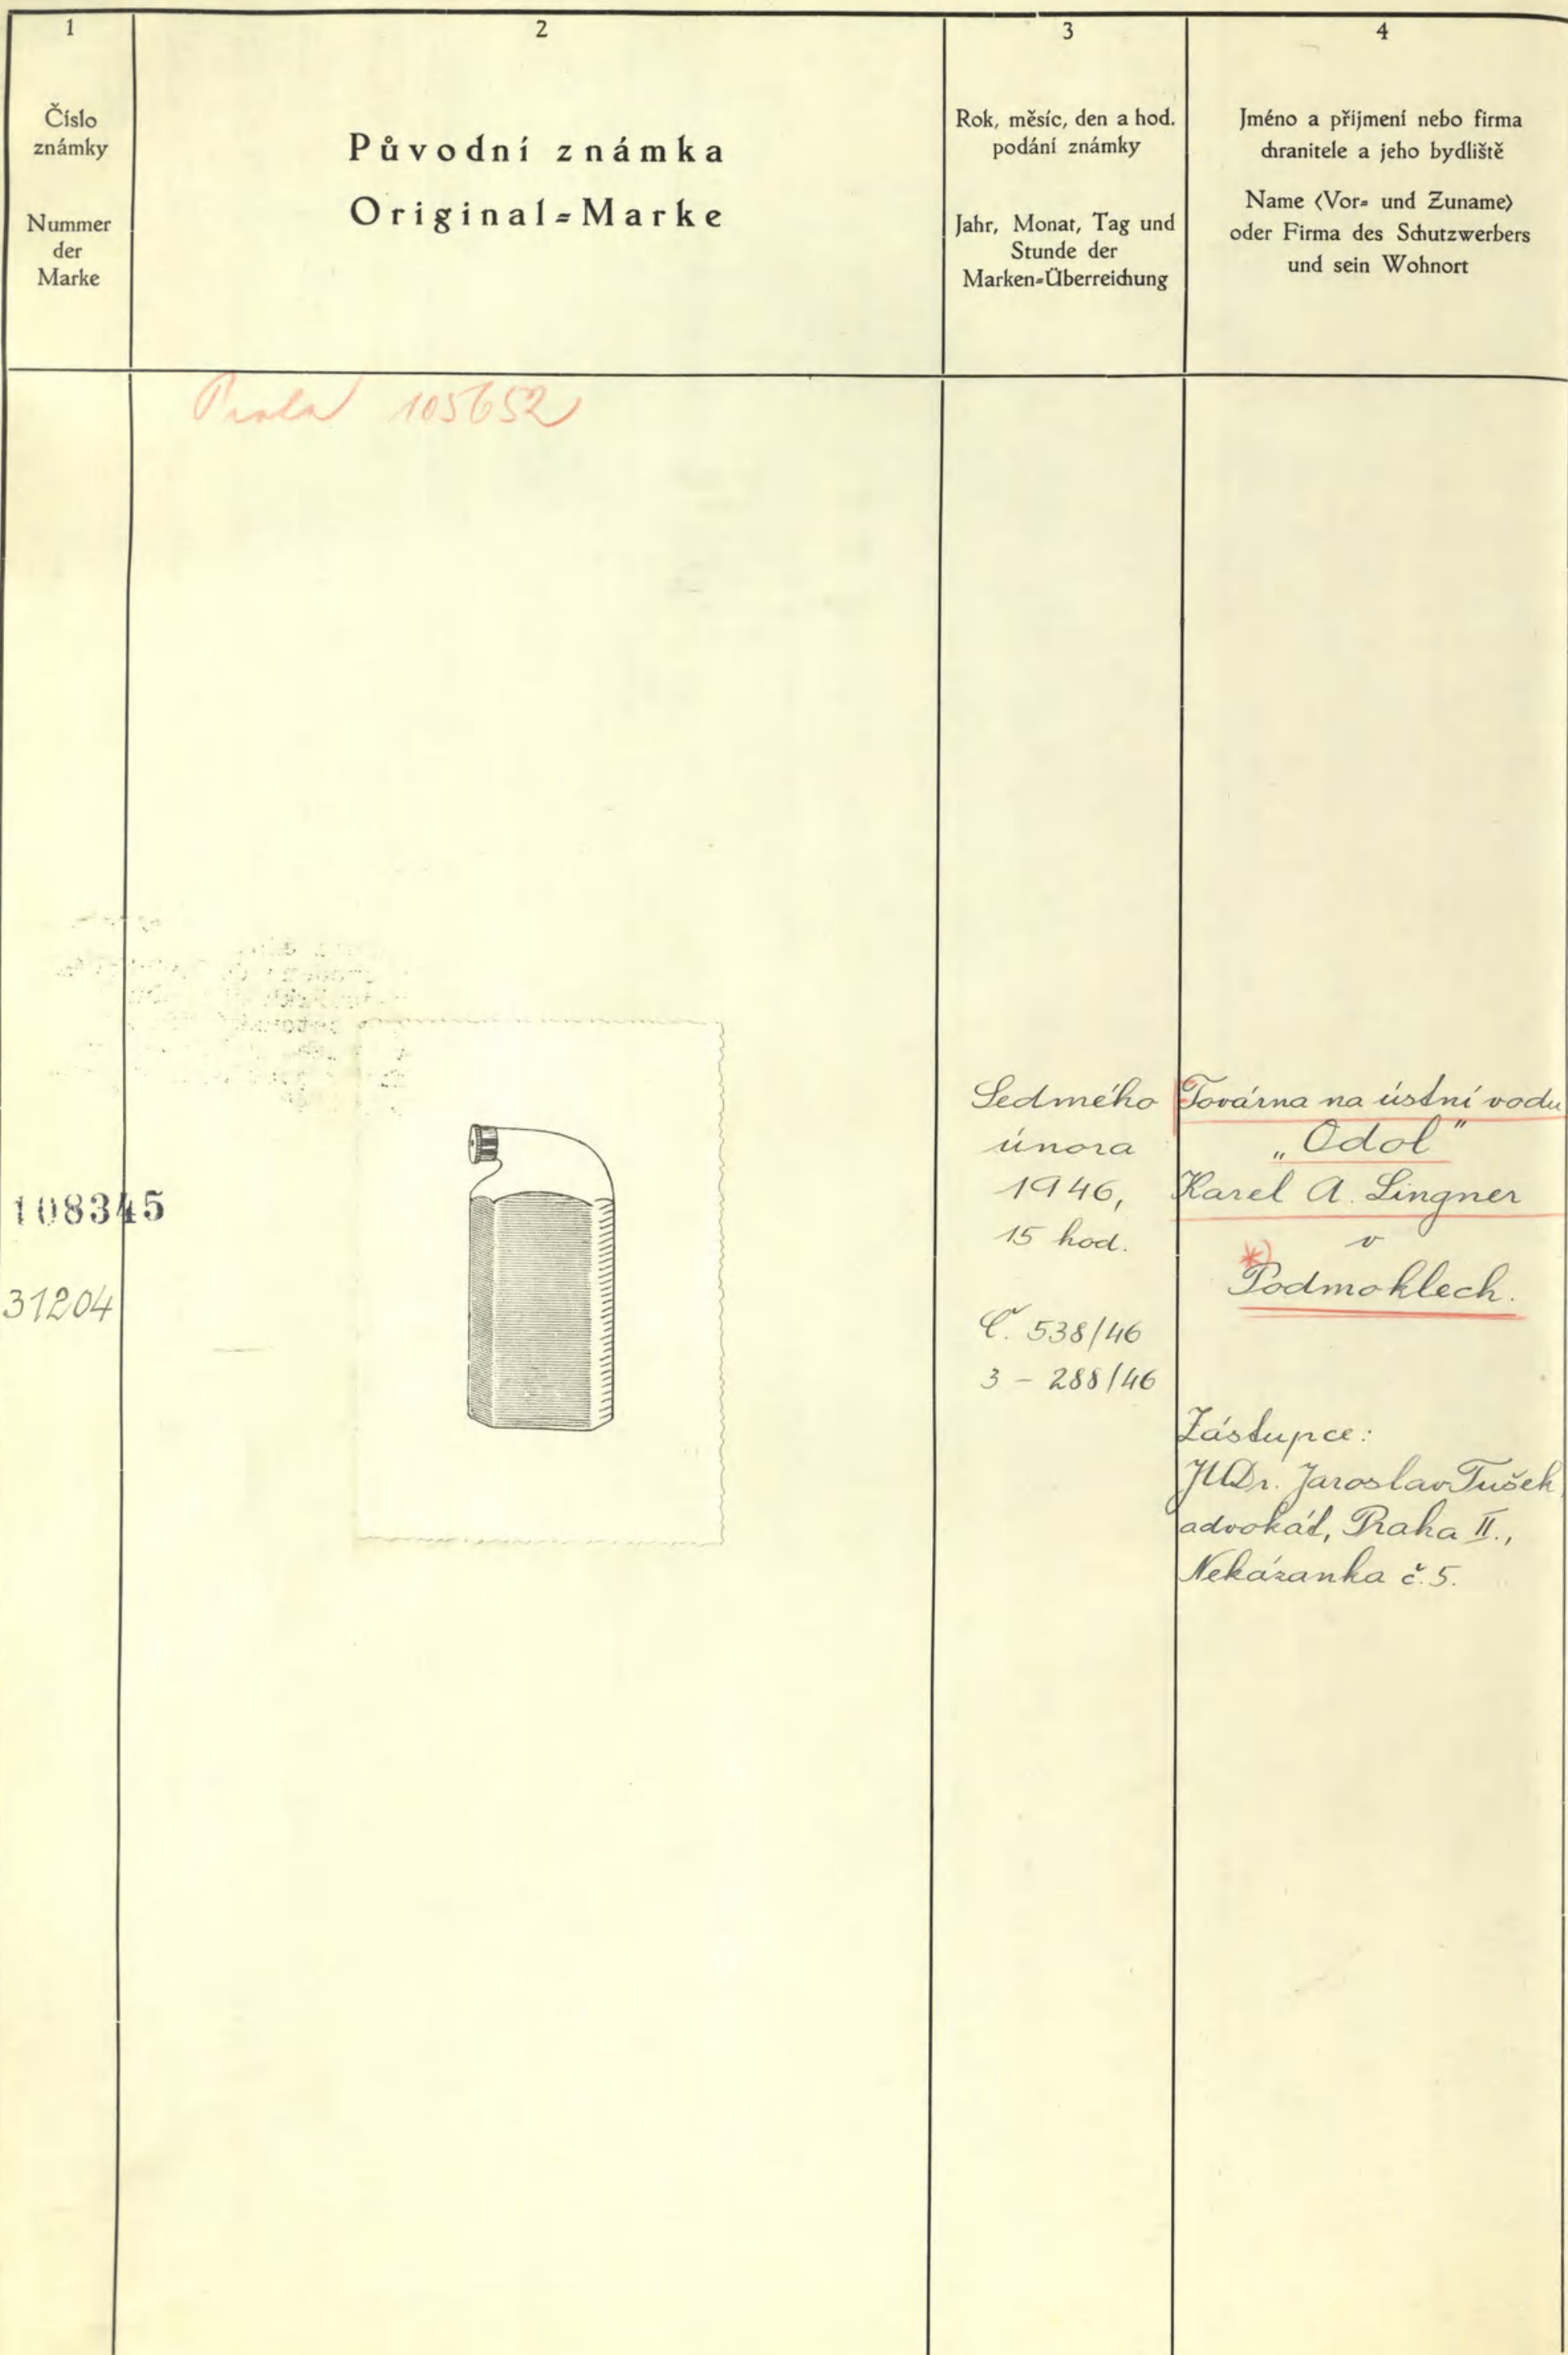 1
Číslo
známky
Nummer
der
Marke
2
Původní známka
Original=Marke
3
Rok, měsíc, den a hod.
podání známky
Jahr, Monat, Tag und
Stunde der
Marken=Überreichung
4
Jméno a příjmení nebo firma
chranitele a jeho bydliště
Name (Vor= und Zuname)
oder Firma des Schutzwerbers
und sein Wohnort
105652
108345
31204
Sedmého
února
1946,
15 hod.
Č. 538/46
3 - 288/46
Továrna na ústní vodu
„Odol"
Karel A. Lingner
v
*)
Podmoklech.
Zástupce:
JUDr. Jaroslav Tušek,
advokát, Praha II.,
Nekázanka č. 5.